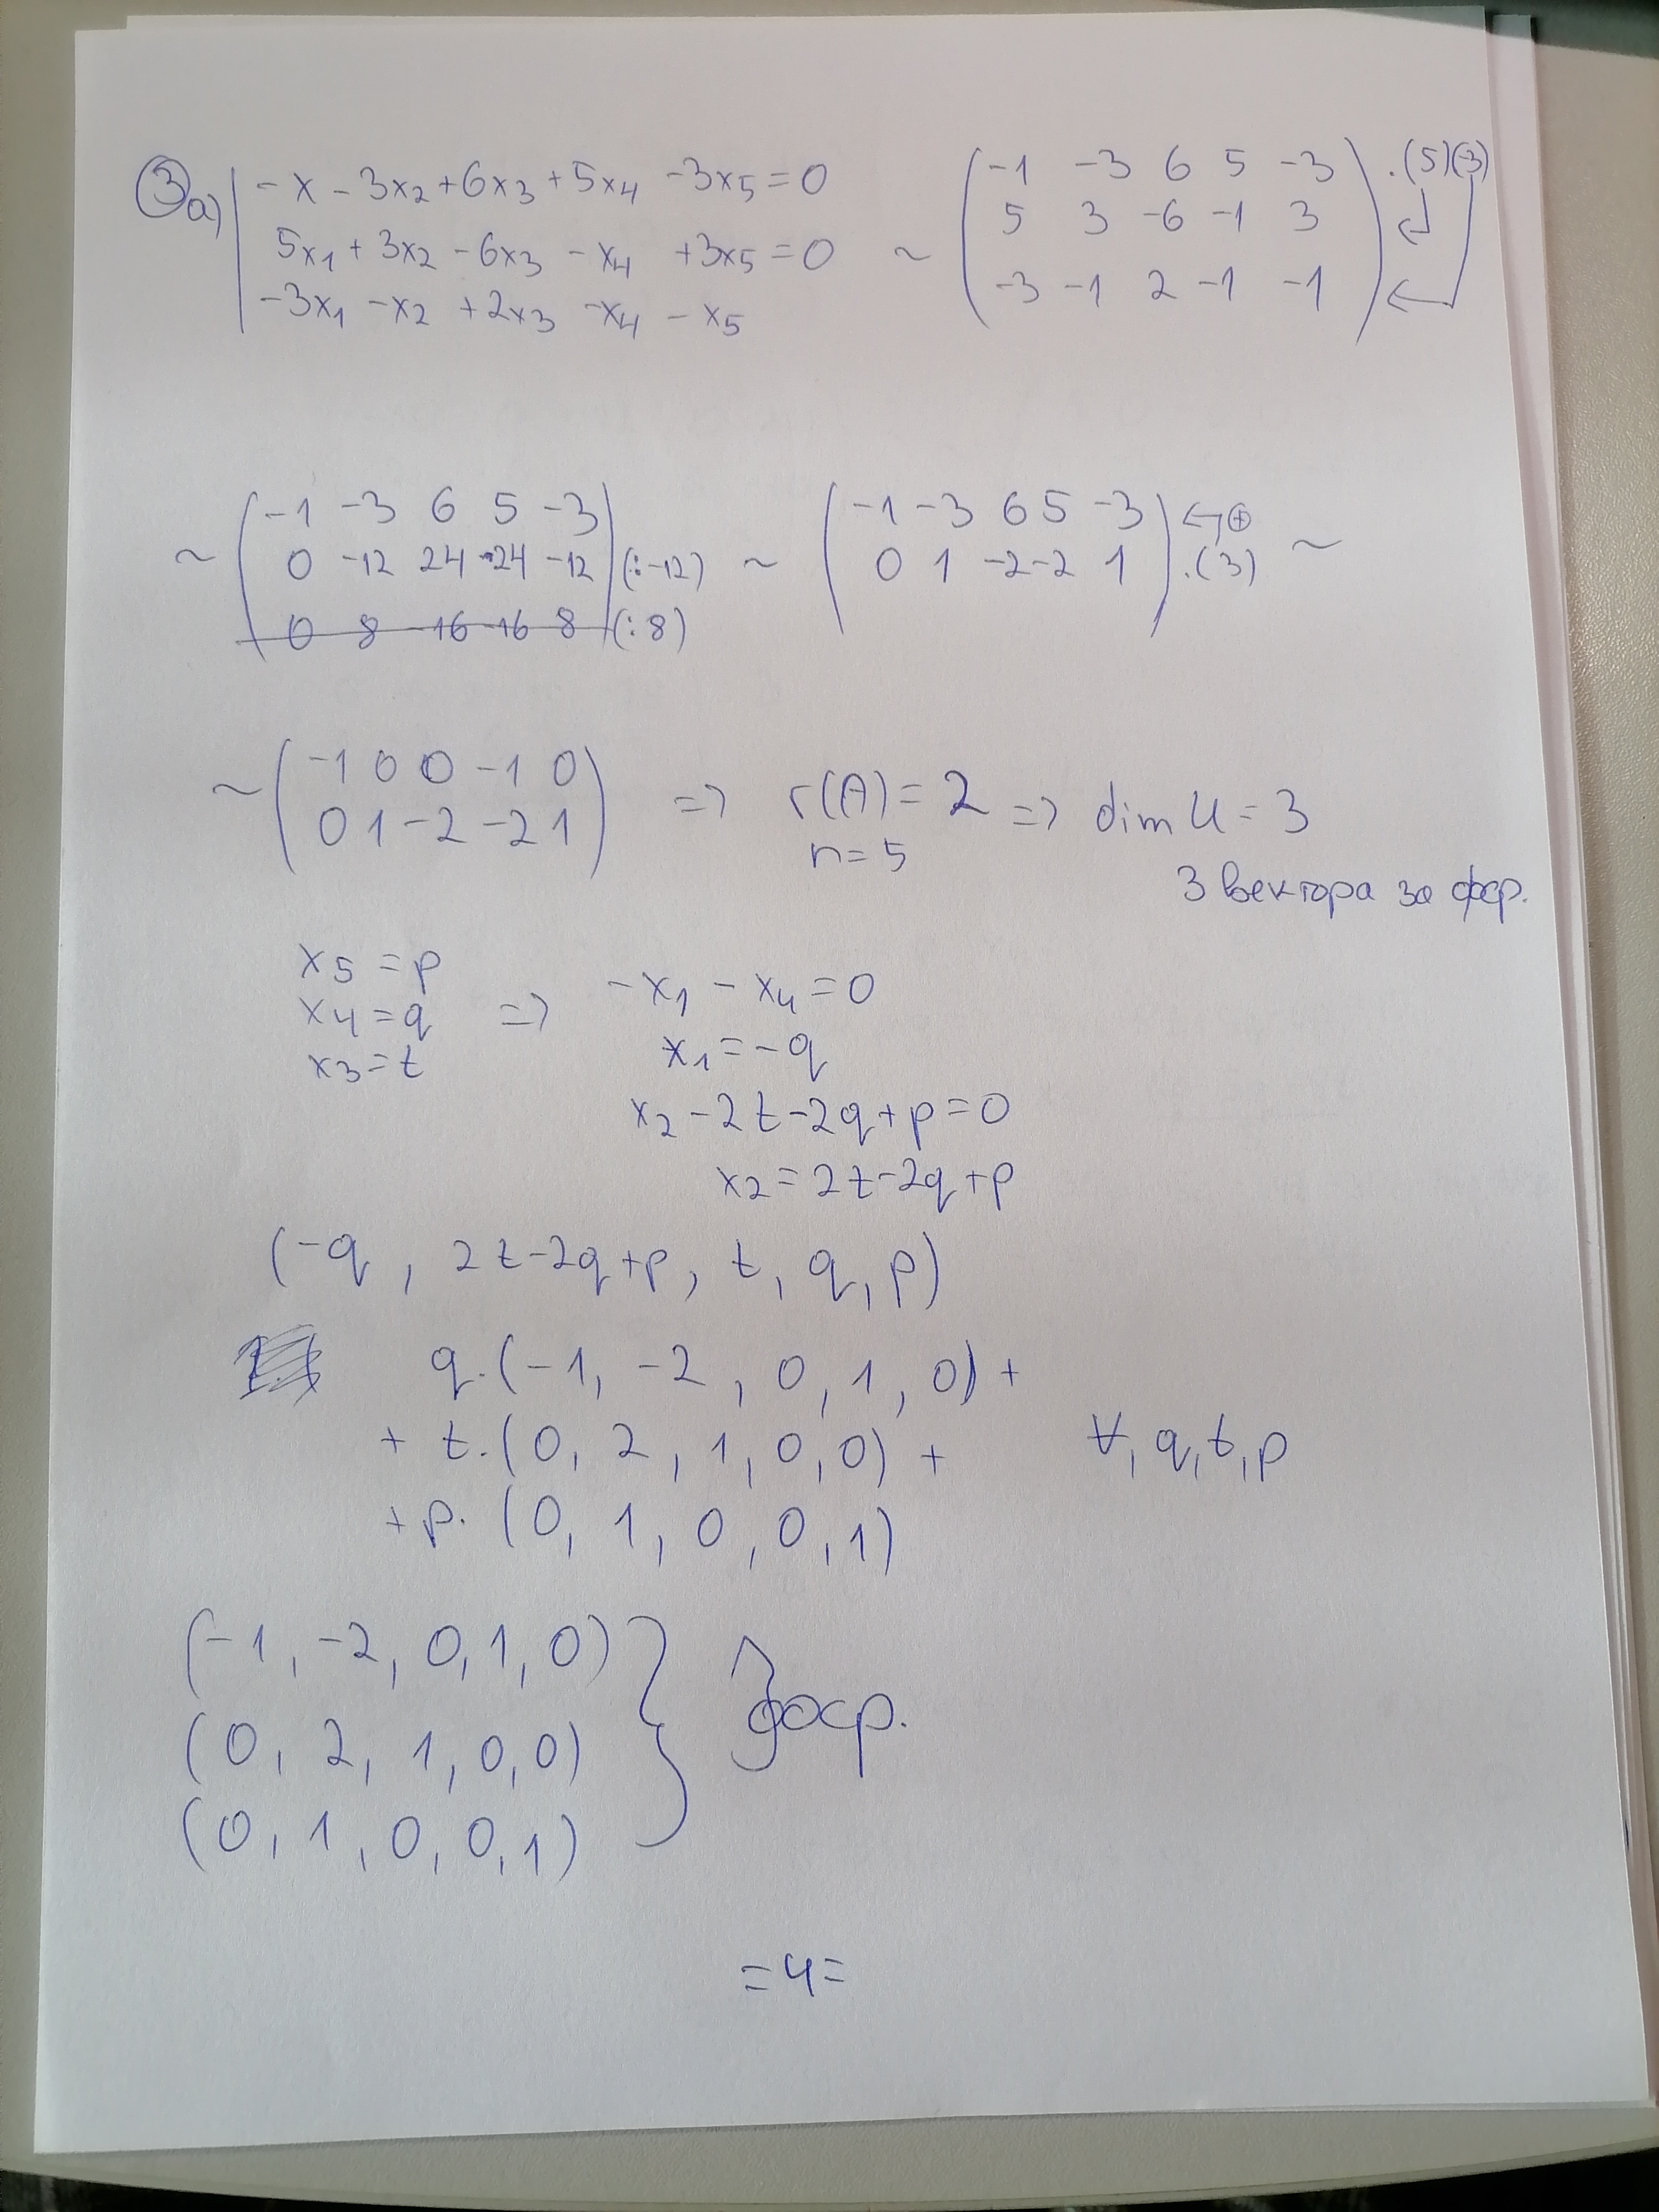 ③а) | -x - 3x₂ + 6x₃ + 5x₄ - 3x₅ = 0
5x₁ + 3x₂ - 6x₃ - x₄ + 3x₅ = 0
-3x₁ - x₂ + 2x₃ - x₄ - x₅
~ ( -1 -3 6 5 -3 ) .(5)(-3)
5 3 -6 -1 3
-3 -1 2 -1 -1
~ ( -1 -3 6 5 -3 )
0 -12 24 24 -12 (:-12)
0 8 -16 -16 8 (:8)
~ ( -1 -3 6 5 -3 ) ←⊕
0 1 -2 -2 1 .(3) ~
~ ( -1 0 0 -1 0 )
0 1 -2 -2 1
=> r(A) = 2 => dim U = 3
n = 5
3 вектора за фср.
x₅ = p
x₄ = q =>
x₃ = t
-x₁ - x₄ = 0
x₁ = -q
x₂ - 2t - 2q + p = 0
x₂ = 2t - 2q + p
(-q, 2t - 2q + p, t, q, p)
q.(-1, -2, 0, 1, 0) +
+ t.(0, 2, 1, 0, 0) + ∀, q, t, p
+ p.(0, 1, 0, 0, 1)
(-1, -2, 0, 1, 0)
(0, 2, 1, 0, 0) } фср.
(0, 1, 0, 0, 1)
=4=